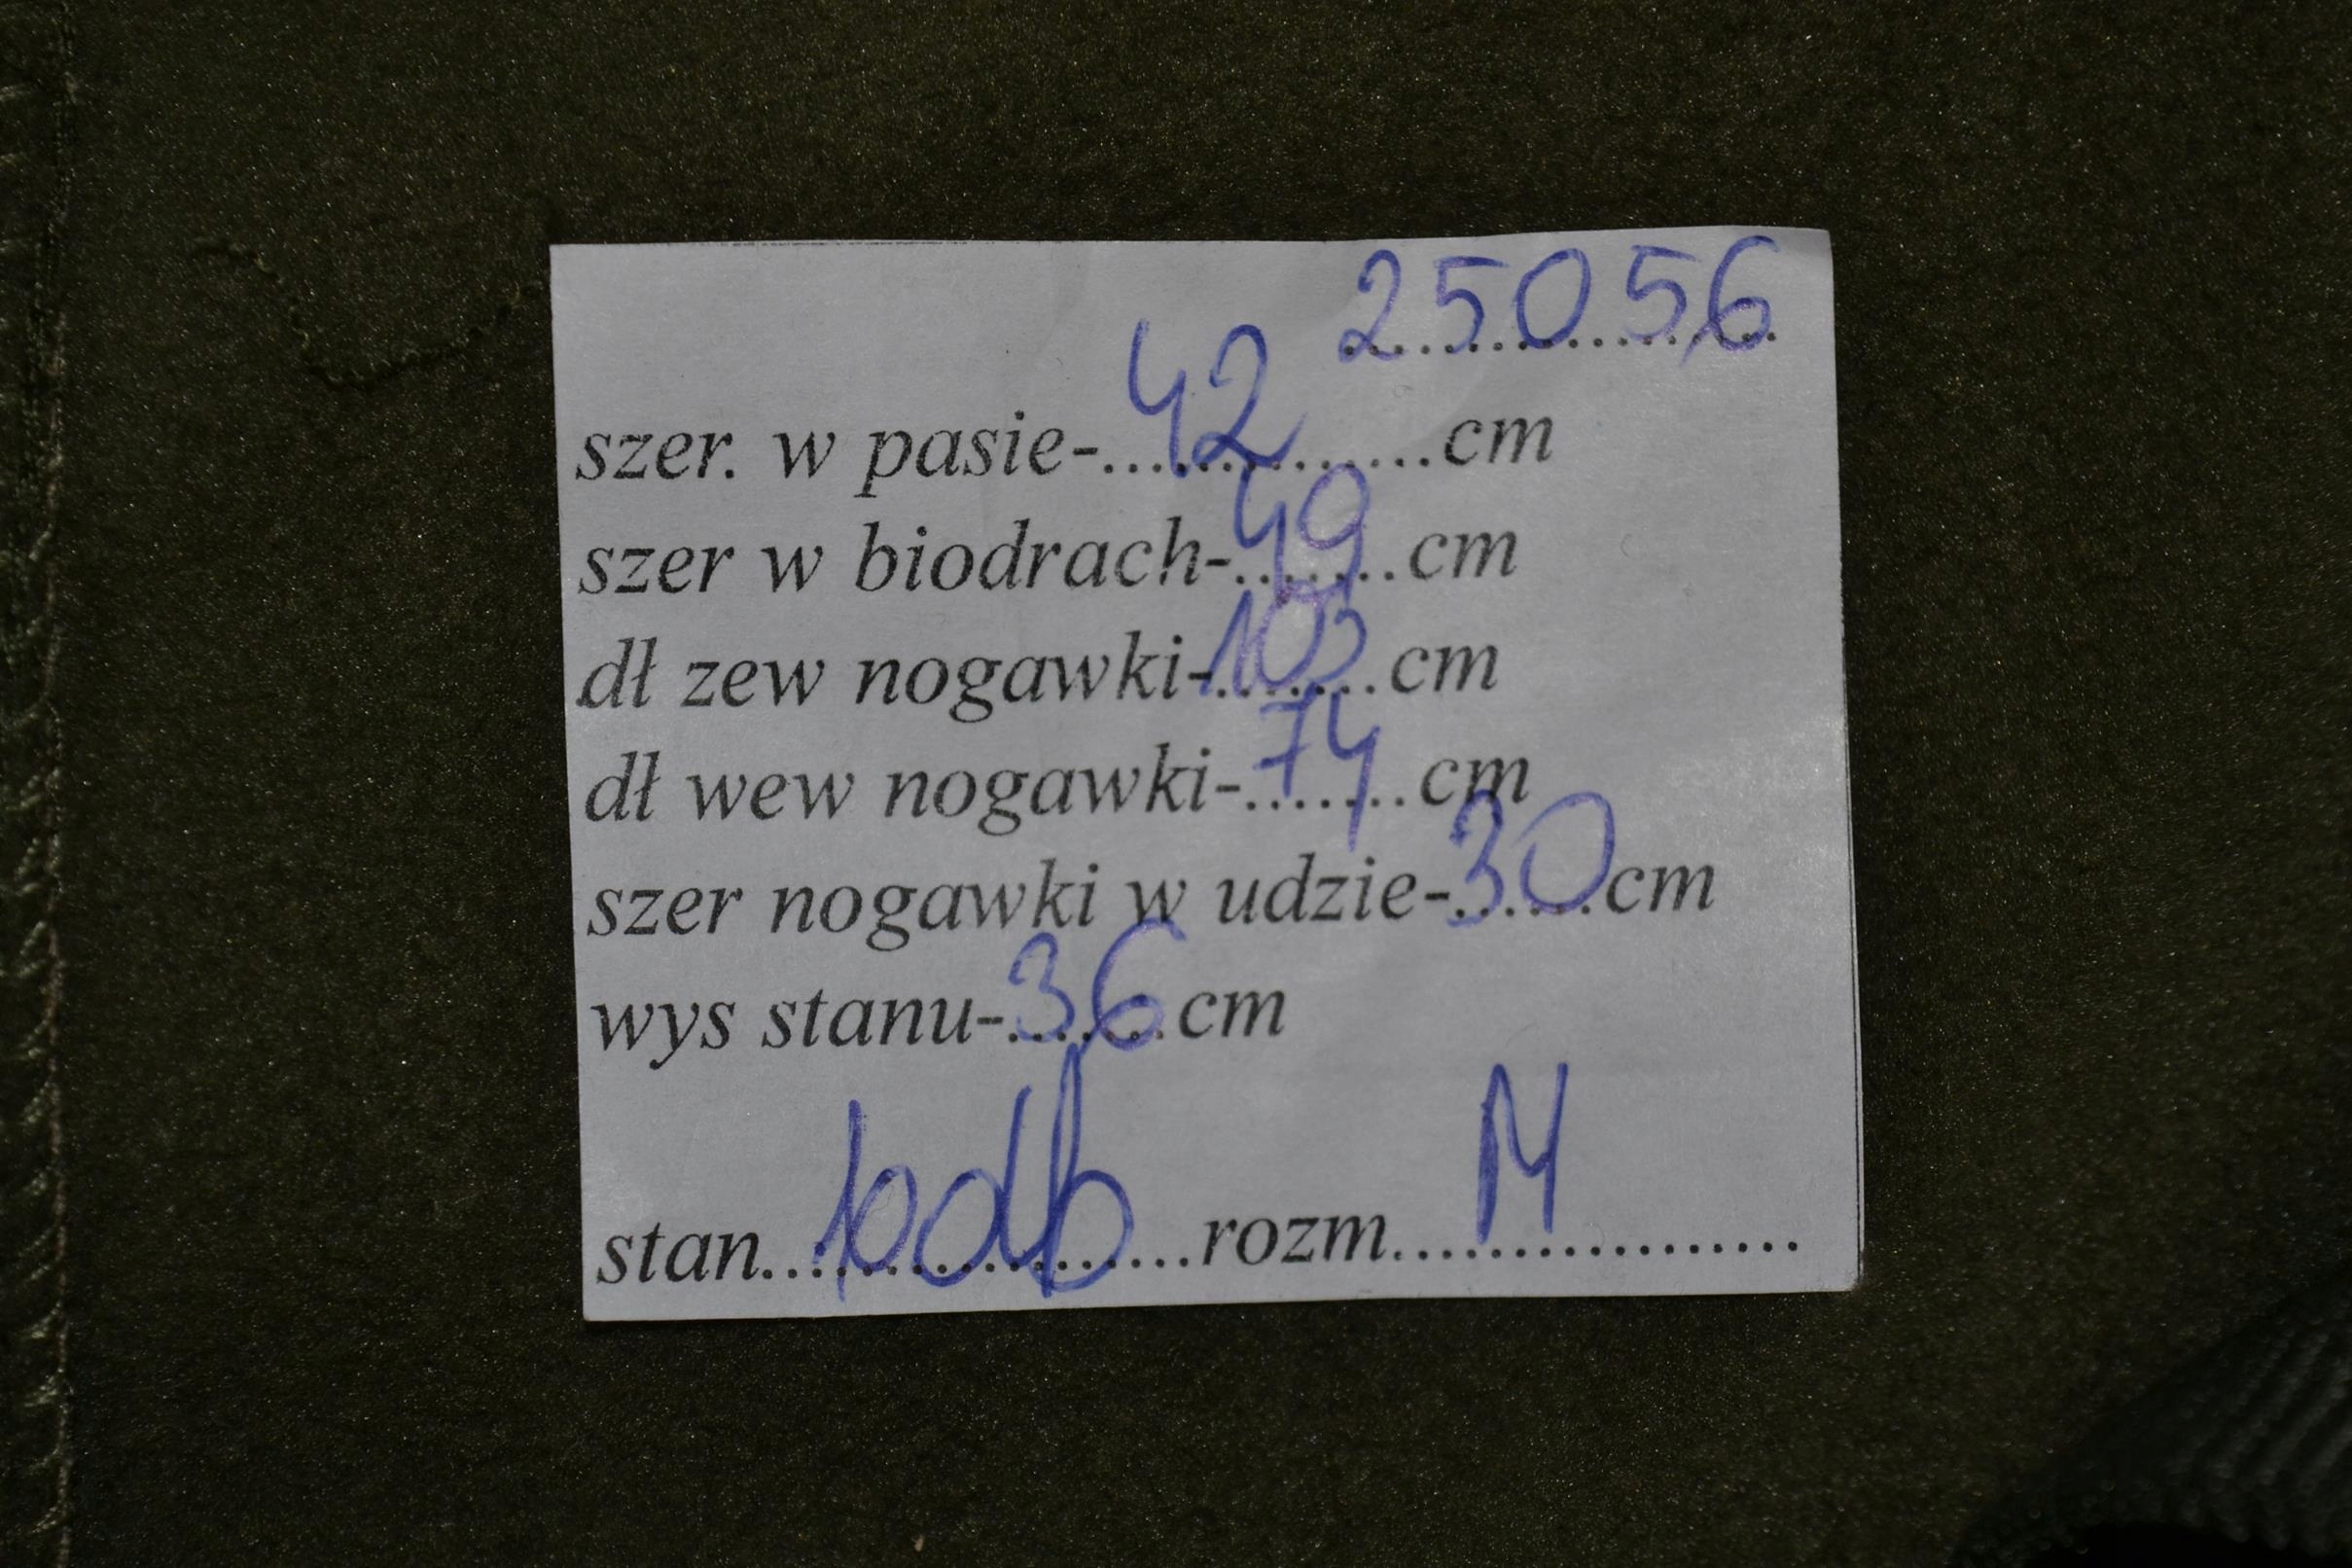 25056
szer. w pasie-42cm
szer w biodrach-49cm
dł zew nogawki-103cm
dł wew nogawki-74cm
szer nogawki w udzie-30cm
wys stanu-36cm
stan.......rozm....M......